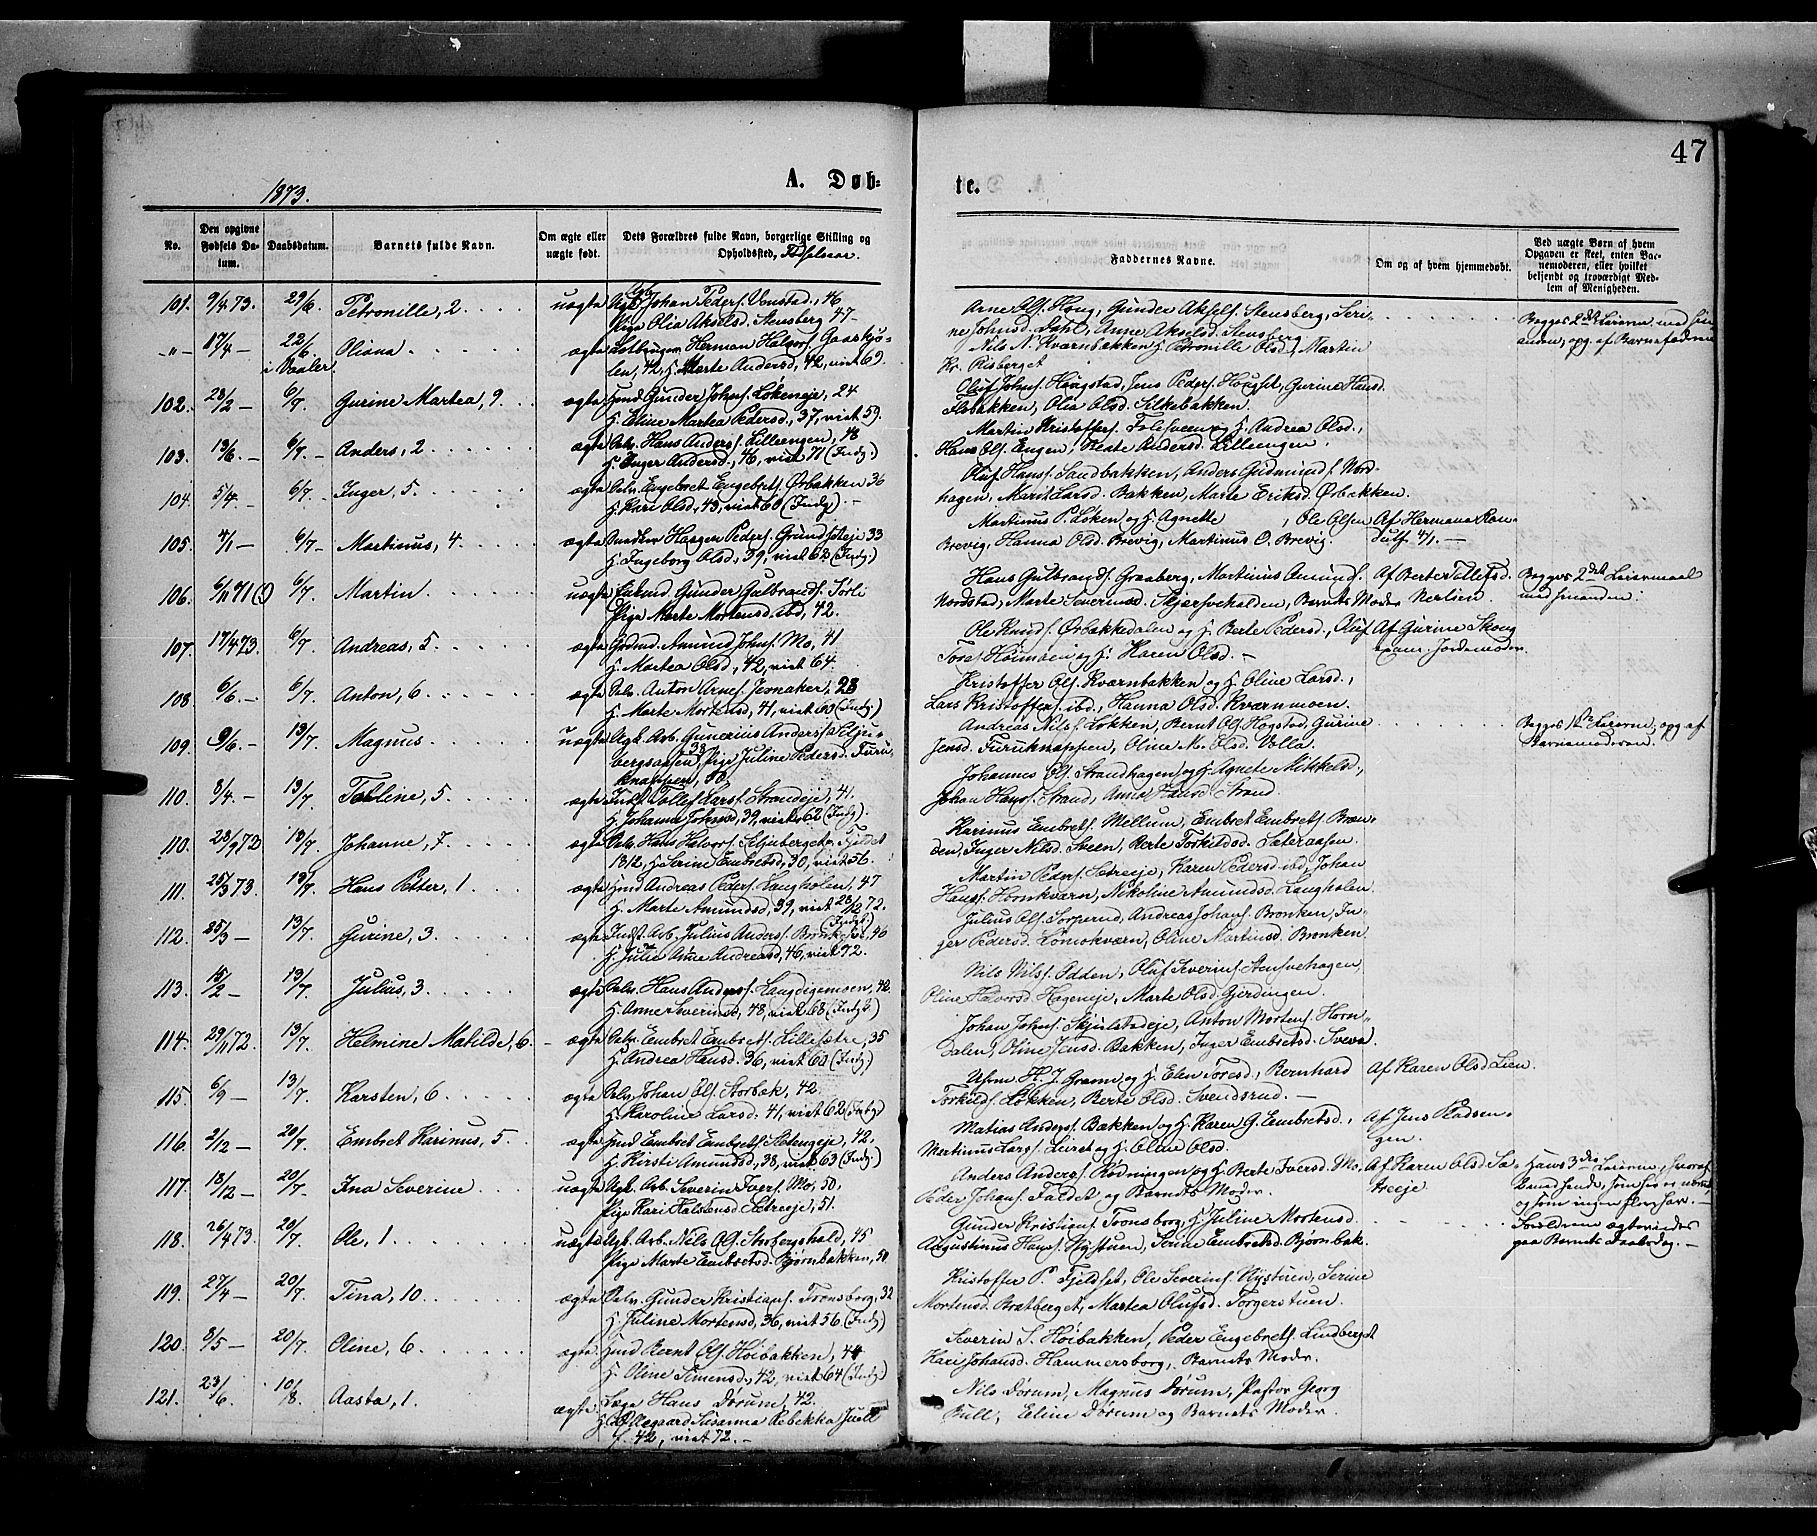 47
1873.
A. Døb-
te.
No.
Den opgivne Fødsels Datum.
Daabsdatum.
Barnets fulde Navn.
Om ægte eller uægte født.
Dets Forældres fulde Navn, borgerlige Stilling og Opholdssted, Fødselsaar
Faddernes Navne.
Om og af hvem hjemmedøbt.
Ved uægte Børn af hvem Opgaven er skeet, enten Barnemoderen, eller hvilket beljendt og troværdigt Medlem af Menigheden.
101. 9/4 73. 29/6 Petronille, 2 uægte Ugk. Johan Peders. Umstad, 46
Pige Olia Akselsd. Stensberg 47
Arne Ols. Houg, Gunder Aksels. Stensberg, Seri-
ne Johnsd. Dahl, Anne Akselsd. Stensberg
Begges 2det Leierm. med hin-
anden, opg. af Barnefaderen
-"- 17/4 - 22/6 i Vaaler. Oliana ægte Herman Halvors. Gaaskjø-
len, 42, H. Marte Andersd., 42, viet 69.
Nils N. Kværnbakken H. Petronille Olsd., Martin
Kr. Risberget
102. 28/2 - 6/7 Gurine Martea, 9. ægte Huusm. Gunder Johns. Løkeneje, 24
H. Eline Martea Pedersd., 37, viet 59.
Oluf Johns. Haugstad, Jens Peders. Hougst, Gurine Hansd.
Flisbakken, Olia Olsd. Silkebakken.
103. 13/6. - 6/7. - Anders, 2 ægte Selv. Hans Anders. Lilleengen, 48
H. Inger Andersd., 46, viet 71 (Indg.)
Martin Kristoffers. H. Andrea Olsd.,
Hans Ols. Engen, Beate Andersd. Lilleengen.
104. 5/4. - 6/7. Inger, 5. ægte Selv. Engebret Engebrets. Ørbakken 36
H. Kari Olsd., 43, viet 60 (Indg.) -
Oluf Hans. Sandbakken, Anders Gudmunds. Nord-
hagen, Marit Larsd. Bakken, Marte Eriksd. Ørbakken.
105. 4/1 - 6/7 - Martinus, 4. ægte Haagen Peders. Grundseteje 33
H. Ingeborg Olsd., 39, viet 62 (Indg.)
Martinus P. Løken og H. Agnette , Ole Olsen
Brevig, Hanna Olsd. Brevig, Martinus O. Brevig.
Af Hermana Ron-
4/1. -
106. 6/11 71 (!) 6/7. Martin. uægte Enkemd. Gunder Gulbrands. Torli
Pige Marte Mortensd. ibd, 42.
Hans Gulbrands. Graaberg, Martinus Amunds.
Nordstad, Marte Severinsd. Skjærsvehalden, Barnets Moder
Af Berte Tollefsd.
Nerlien.
Begges 2det Leiermaal
med hinanden.
107. 17/4 73. 6/7. Andreas, 5 ægte Amund Johns. Mo, 41
H. Martea Olsd., 42, viet 64.
Ole Knuds. Ørbækkedalen og H. Berte Pedersd., Oluf
Tores. Høimoen og H. Karen Olsd. -
Af Gurine Skoug
exam. Jordemoder.
108. 6/6 - 6/7. Anton, 6 ægte Selv. Anton Arnes. Jesnaker, 23
H. Marte Mortensd., 41, viet 60 (Indg.)
Kristoffer Ols. Kværnbakken og H. Oline Larsd.,
Lars Kristoffers. ibd, Hanna Olsd. Kværnmoen.
109. 9/6. - 13/7. Magnus uægte Ugk. Arb. Gunerius Anders.
bergsaasen, 38 Pige Juline Pedersd. Furu-
knappen, 50.
Andreas Nils. Løkken, Bernt Ols. Hogstad, Gurine
Jensd. Furuknappen, Oline M. Olsd. Volla.
Begges 1ste Leierm., opg. af
Barnemoderen.
110. 8/4 - 13/7. Toline, 5 ægte Tollef Lars. Strandeje, 41.
H. Johanna Johnsd., 39, viet 62 (Indg.)
Johannes Ols. Strandhagen og H. Agnete Mikkelsd.,
Johan Hans. Strand, Anna Hansd. Strand.
110. 23/9 72 13/7. Johanne, 7. ægte Selv. Hans Halvors.
1812, H. Serine Embretsd., 30, viet 56.
Karinus Embrets. Mellum, Embret Embrets. Bræn-
den, Inger Nilsd. Steen, Berte Torkildsd. Sæteraasen.
111. 25/3 73. 13/7. Hans Petter, 1 ægte Andreas Peders. Langholen, 47
H. Marte Amundsd., 39, viet 28/12 72.
Martin Peders. Sætreeje, Karen Pedersd. ibd, Johan
Hans. Hornkværn, Nikoline Amundsd. Langholen.
112. 25/3 - 13/7. Gurine, 3. ægte Indst. Arb. Julius Anders. 46
H. Julie Anne Andreasd., 46, viet 72. (Indgt.)
Julius Ols. Sorperud, Andreas Johans. Bronken, In-
ger Pedersd. Lømokværn, Oline Martinsd. Bronken
113. 15/2 - 13/7. Julius, 3. ægte Selv. Hans Anders. Langdigemoen, 42.
H. Anne Severinsd., 48, viet 68 (Indgt.)
Nils Nils. Odden, Oluf Severins. Stensvehagen,
Oline Halvorsd. Hageneje, Marte Olsd. Gjerdingen.
114. 29/11 72. 13/7. Helmine Matilde, 6. ægte Selv. Embret Embrets. Lillesætre, 35
H. Andrea Hansd. 36, viet 60 (Indg.)
Johan Johns. Skjulstadeje, Anton Mortens. Horn-
dalen, Oline Jensd. Bakken, Inger Embretsd. Sveva
115. 6/9 - 13/7. Karsten, 6 ægte Selv. Johan Ols. Storbæk, 42.
H. Karoline Larsd. 41, viet 62 (Indg.)
H. J. Gramm og H. Elen Toresd., Bernhard
Torkilds. Løkken, Berte Olsd. Svendsrud. -
Af Karen Olsd Lien
116. 2/12 - 20/7. Embret Karinus, 5. ægte Embret Embrets. Stetengeje, 42,
H. Kirsti Amundsd., 38, viet 63 (Indg.)
Matias Anders. Bakken og H. Karen G. Embretsd.,
Martinus Lars. Leiret og H. Oline Olsd.
Af Jens Pladsen-
gen.
117. 18/12 - 20/7 - Ina Severine uægte Ugk. Arb. Severin Ivers. Mo, 50,
Pige Kari Halstensd Sætreeje, 51.
Anders Anders. Rødningen og H. Berte Iversd. Mo,
Peder Johans. Faldet og Barnets Moder.
Af Karen Olsd Sæ-
treeje
Hans 3die Leierm., hvoraf
og som ingen fler har. -
118. 26/4 73. 20/7. Ole, 1 uægte Ugk. Arb. Nils Ols. Storbergshald, 45
Pige Marte Embretsd. Bjørnbakken, 50
Gunder Kristians. Tronsborg, H. Juline Mortensd.
Augustinus Hans. Nystuen, Serine Embretsd. Bjørnbak.
Forældrene ægteviedes
paa Barnets Daabsdag. -
119. 27/4 - 20/7. Tina, 10 ægte Selv. Gunder Kristians. Tronsborg, 32
H. Juline Mortensd. 36, viet 56 (Indg.)
Kristoffer P. Fjeldset, Ole Severins. Nystuen, Serine
Mortensd. Bratberget, Martea Olufsd. Torgerstuen.
120. 8/5 - 20/7. Oline, 6 ægte Bernt Ols. Høibakken, 44
H. Oline Simensd., 42, viet 64 (Indg.)
Severin S. Høibakken, Peder Engebrets. Lindberget
Kari Johansd. Hammersborg, Barnets Moder.
121. 23/6 10/8. Aasta, 1. ægte Læge Hans Dørum, 42.
H. Ollegaard Susanna Rebekka Juell
f. 42, viet 72. -
Nils Dørum, Magnus Dørum, Pastor Georg
Bull, Eline Dørum og Barnets Moder.